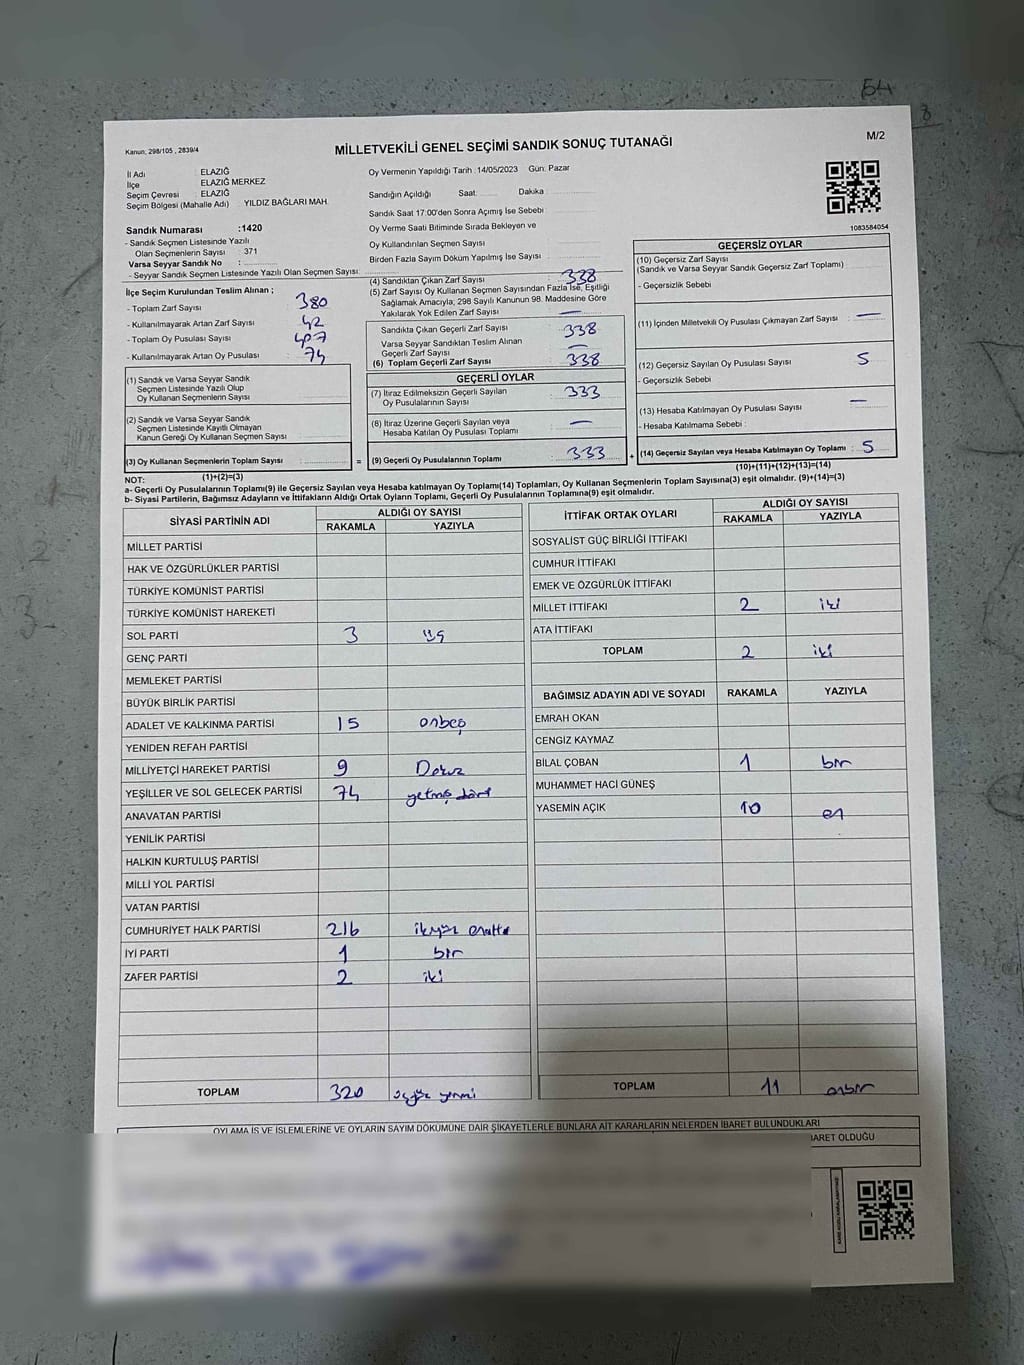 64
8
Kanun, 298/105 , 2839/4
MİLLETVEKİLİ GENEL SEÇİMİ SANDIK SONUÇ TUTANAĞI
M/2
İl Adı : ELAZIĞ
İlçe : ELAZIĞ MERKEZ
Seçim Çevresi : ELAZIĞ
Seçim Bölgesi (Mahalle Adı) : YILDIZ BAĞLARI MAH.
Oy Vermenin Yapıldığı Tarih : 14/05/2023 Gün: Pazar
Sandığın Açıldığı Saat: Dakika :
Sandık Saat 17:00'den Sonra Açımış İse Sebebi :
Oy Verme Saati Bitiminde Sırada Bekleyen ve
Oy Kullandırılan Seçmen Sayısı
Birden Fazla Sayım Döküm Yapılmış İse Sayısı :
1083584054
Sandık Numarası :1420
- Sandık Seçmen Listesinde Yazılı
Olan Seçmenlerin Sayısı : 371
Varsa Seyyar Sandık No :
- Seyyar Sandık Seçmen Listesinde Yazılı Olan Seçmen Sayısı:
İlçe Seçim Kurulundan Teslim Alınan ;
- Toplam Zarf Sayısı : 380
- Kullanılmayarak Artan Zarf Sayısı : 42
- Toplam Oy Pusulası Sayısı : 407
- Kullanılmayarak Artan Oy Pusulası : 74
(1) Sandık ve Varsa Seyyar Sandık
Seçmen Listesinde Yazılı Olup
Oy Kullanan Seçmenlerin Sayısı :
(2) Sandık ve Varsa Seyyar Sandık
Seçmen Listesinde Kayıtlı Olmayan
Kanun Gereği Oy Kullanan Seçmen Sayısı :
(3) Oy Kullanan Seçmenlerin Toplam Sayısı :
(1)+(2)=(3)
(4) Sandıktan Çıkan Zarf Sayısı : 338
(5) Zarf Sayısı Oy Kullanan Seçmen Sayısından Fazla İse, Eşitliği
Sağlamak Amacıyla; 298 Sayılı Kanunun 98. Maddesine Göre
Yakılarak Yok Edilen Zarf Sayısı : —
Sandıkta Çıkan Geçerli Zarf Sayısı : 338
Varsa Seyyar Sandıktan Teslim Alınan
Geçerli Zarf Sayısı : —
(6) Toplam Geçerli Zarf Sayısı : 338
GEÇERLİ OYLAR
(7) İtiraz Edilmeksizin Geçerli Sayılan
Oy Pusulalarının Sayısı : 333
(8) İtiraz Üzerine Geçerli Sayılan veya
Hesaba Katılan Oy Pusulası Toplamı : —
= (9) Geçerli Oy Pusulalarının Toplamı : 333 +
GEÇERSİZ OYLAR
(10) Geçersiz Zarf Sayısı
(Sandık ve Varsa Seyyar Sandık Geçersiz Zarf Toplamı) :
- Geçersizlik Sebebi :
(11) İçinden Milletvekili Oy Pusulası Çıkmayan Zarf Sayısı : —
(12) Geçersiz Sayılan Oy Pusulası Sayısı : 5
- Geçersizlik Sebebi :
(13) Hesaba Katılmayan Oy Pusulası Sayısı : —
- Hesaba Katılmama Sebebi :
(14) Geçersiz Sayılan veya Hesaba Katılmayan Oy Toplamı : 5
(10)+(11)+(12)+(13)=(14)
NOT:
a- Geçerli Oy Pusulalarının Toplamı(9) ile Geçersiz Sayılan veya Hesaba Katılmayan Oy Toplamı(14) Toplamları, Oy Kullanan Seçmenlerin Toplam Sayısına(3) eşit olmalıdır. (9)+(14)=(3)
b- Siyasi Partilerin, Bağımsız Adayların ve İttifakların Aldığı Ortak Oyların Toplamı, Geçerli Oy Pusulalarının Toplamına(9) eşit olmalıdır.
SİYASİ PARTİNİN ADI ALDIĞI OY SAYISI
RAKAMLA YAZIYLA
MİLLET PARTİSİ
HAK VE ÖZGÜRLÜKLER PARTİSİ
TÜRKİYE KOMÜNİST PARTİSİ
TÜRKİYE KOMÜNİST HAREKETİ
SOL PARTİ 3 üç
GENÇ PARTİ
MEMLEKET PARTİSİ
BÜYÜK BİRLİK PARTİSİ
ADALET VE KALKINMA PARTİSİ 15 onbeş
YENİDEN REFAH PARTİSİ
MİLLİYETÇİ HAREKET PARTİSİ 9 Dokuz
YEŞİLLER VE SOL GELECEK PARTİSİ 74 yetmiş dört
ANAVATAN PARTİSİ
YENİLİK PARTİSİ
HALKIN KURTULUŞ PARTİSİ
MİLLİ YOL PARTİSİ
VATAN PARTİSİ
CUMHURİYET HALK PARTİSİ 216 ikiyüz onaltı
İYİ PARTİ 1 bir
ZAFER PARTİSİ 2 iki
TOPLAM 320 üçyüz yirmi
İTTİFAK ORTAK OYLARI ALDIĞI OY SAYISI
RAKAMLA YAZIYLA
SOSYALİST GÜÇ BİRLİĞİ İTTİFAKI
CUMHUR İTTİFAKI
EMEK VE ÖZGÜRLÜK İTTİFAKI
MİLLET İTTİFAKI 2 iki
ATA İTTİFAKI
TOPLAM 2 iki
BAĞIMSIZ ADAYIN ADI VE SOYADI RAKAMLA YAZIYLA
EMRAH OKAN
CENGİZ KAYMAZ
BİLAL ÇOBAN 1 bir
MUHAMMET HACİ GÜNEŞ
YASEMİN AÇIK 10 on
TOPLAM 11 onbir
OYLAMA İŞ VE İŞLEMLERİNE VE OYLARIN SAYIM DÖKÜMÜNE DAİR ŞİKAYETLERLE BUNLARA AİT KARARLARIN NELERDEN İBARET BULUNDUKLARI
BARET OLDUĞU